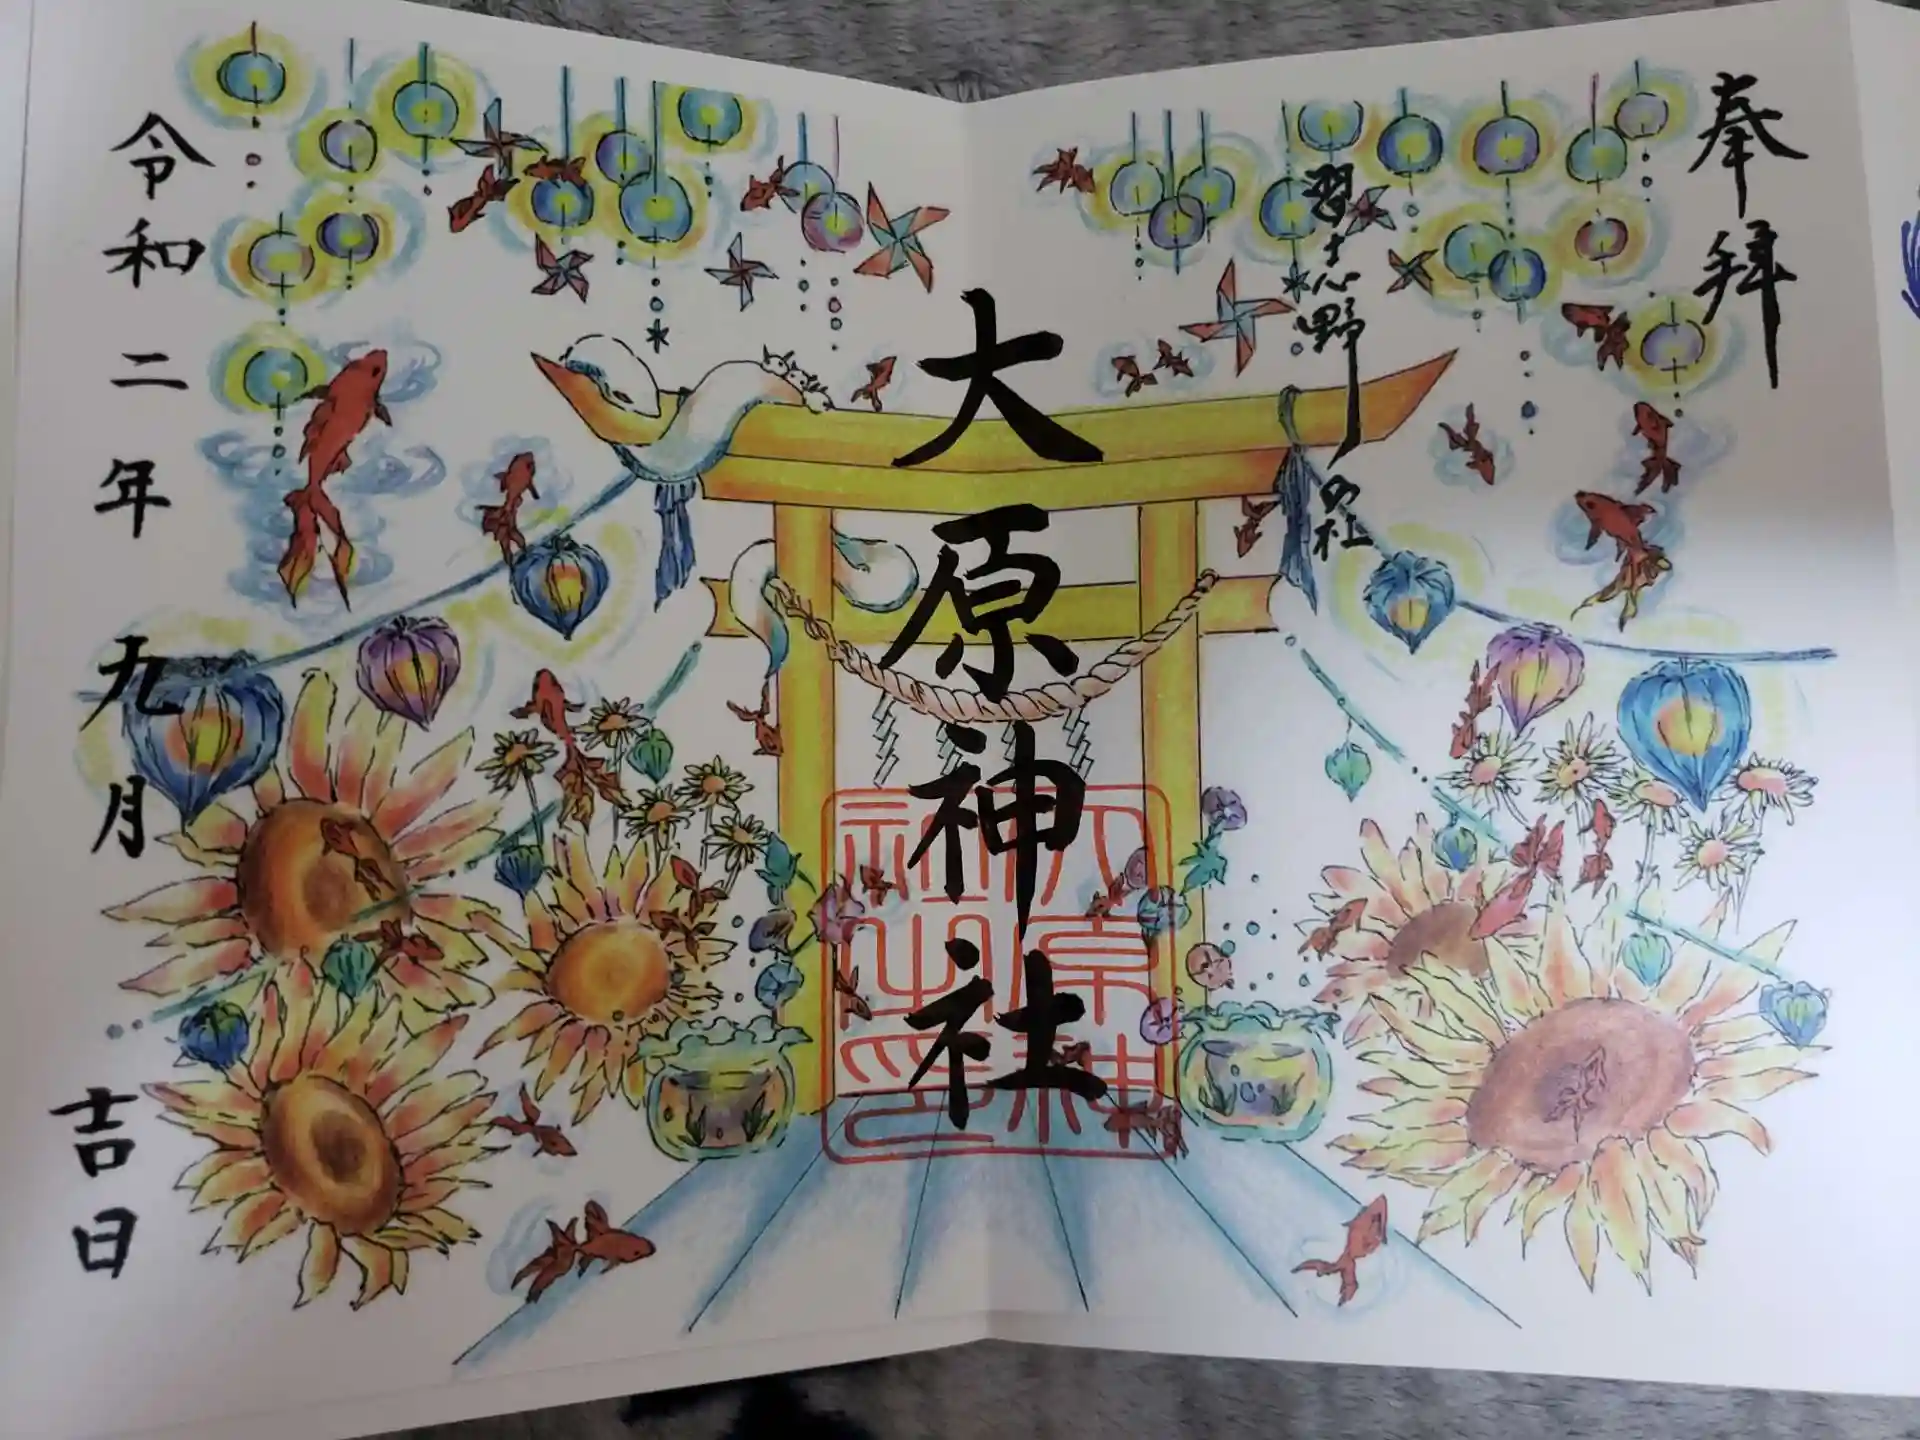 奉拝
習志野の社
大原神社
大原神社之印
令和二年九月吉日